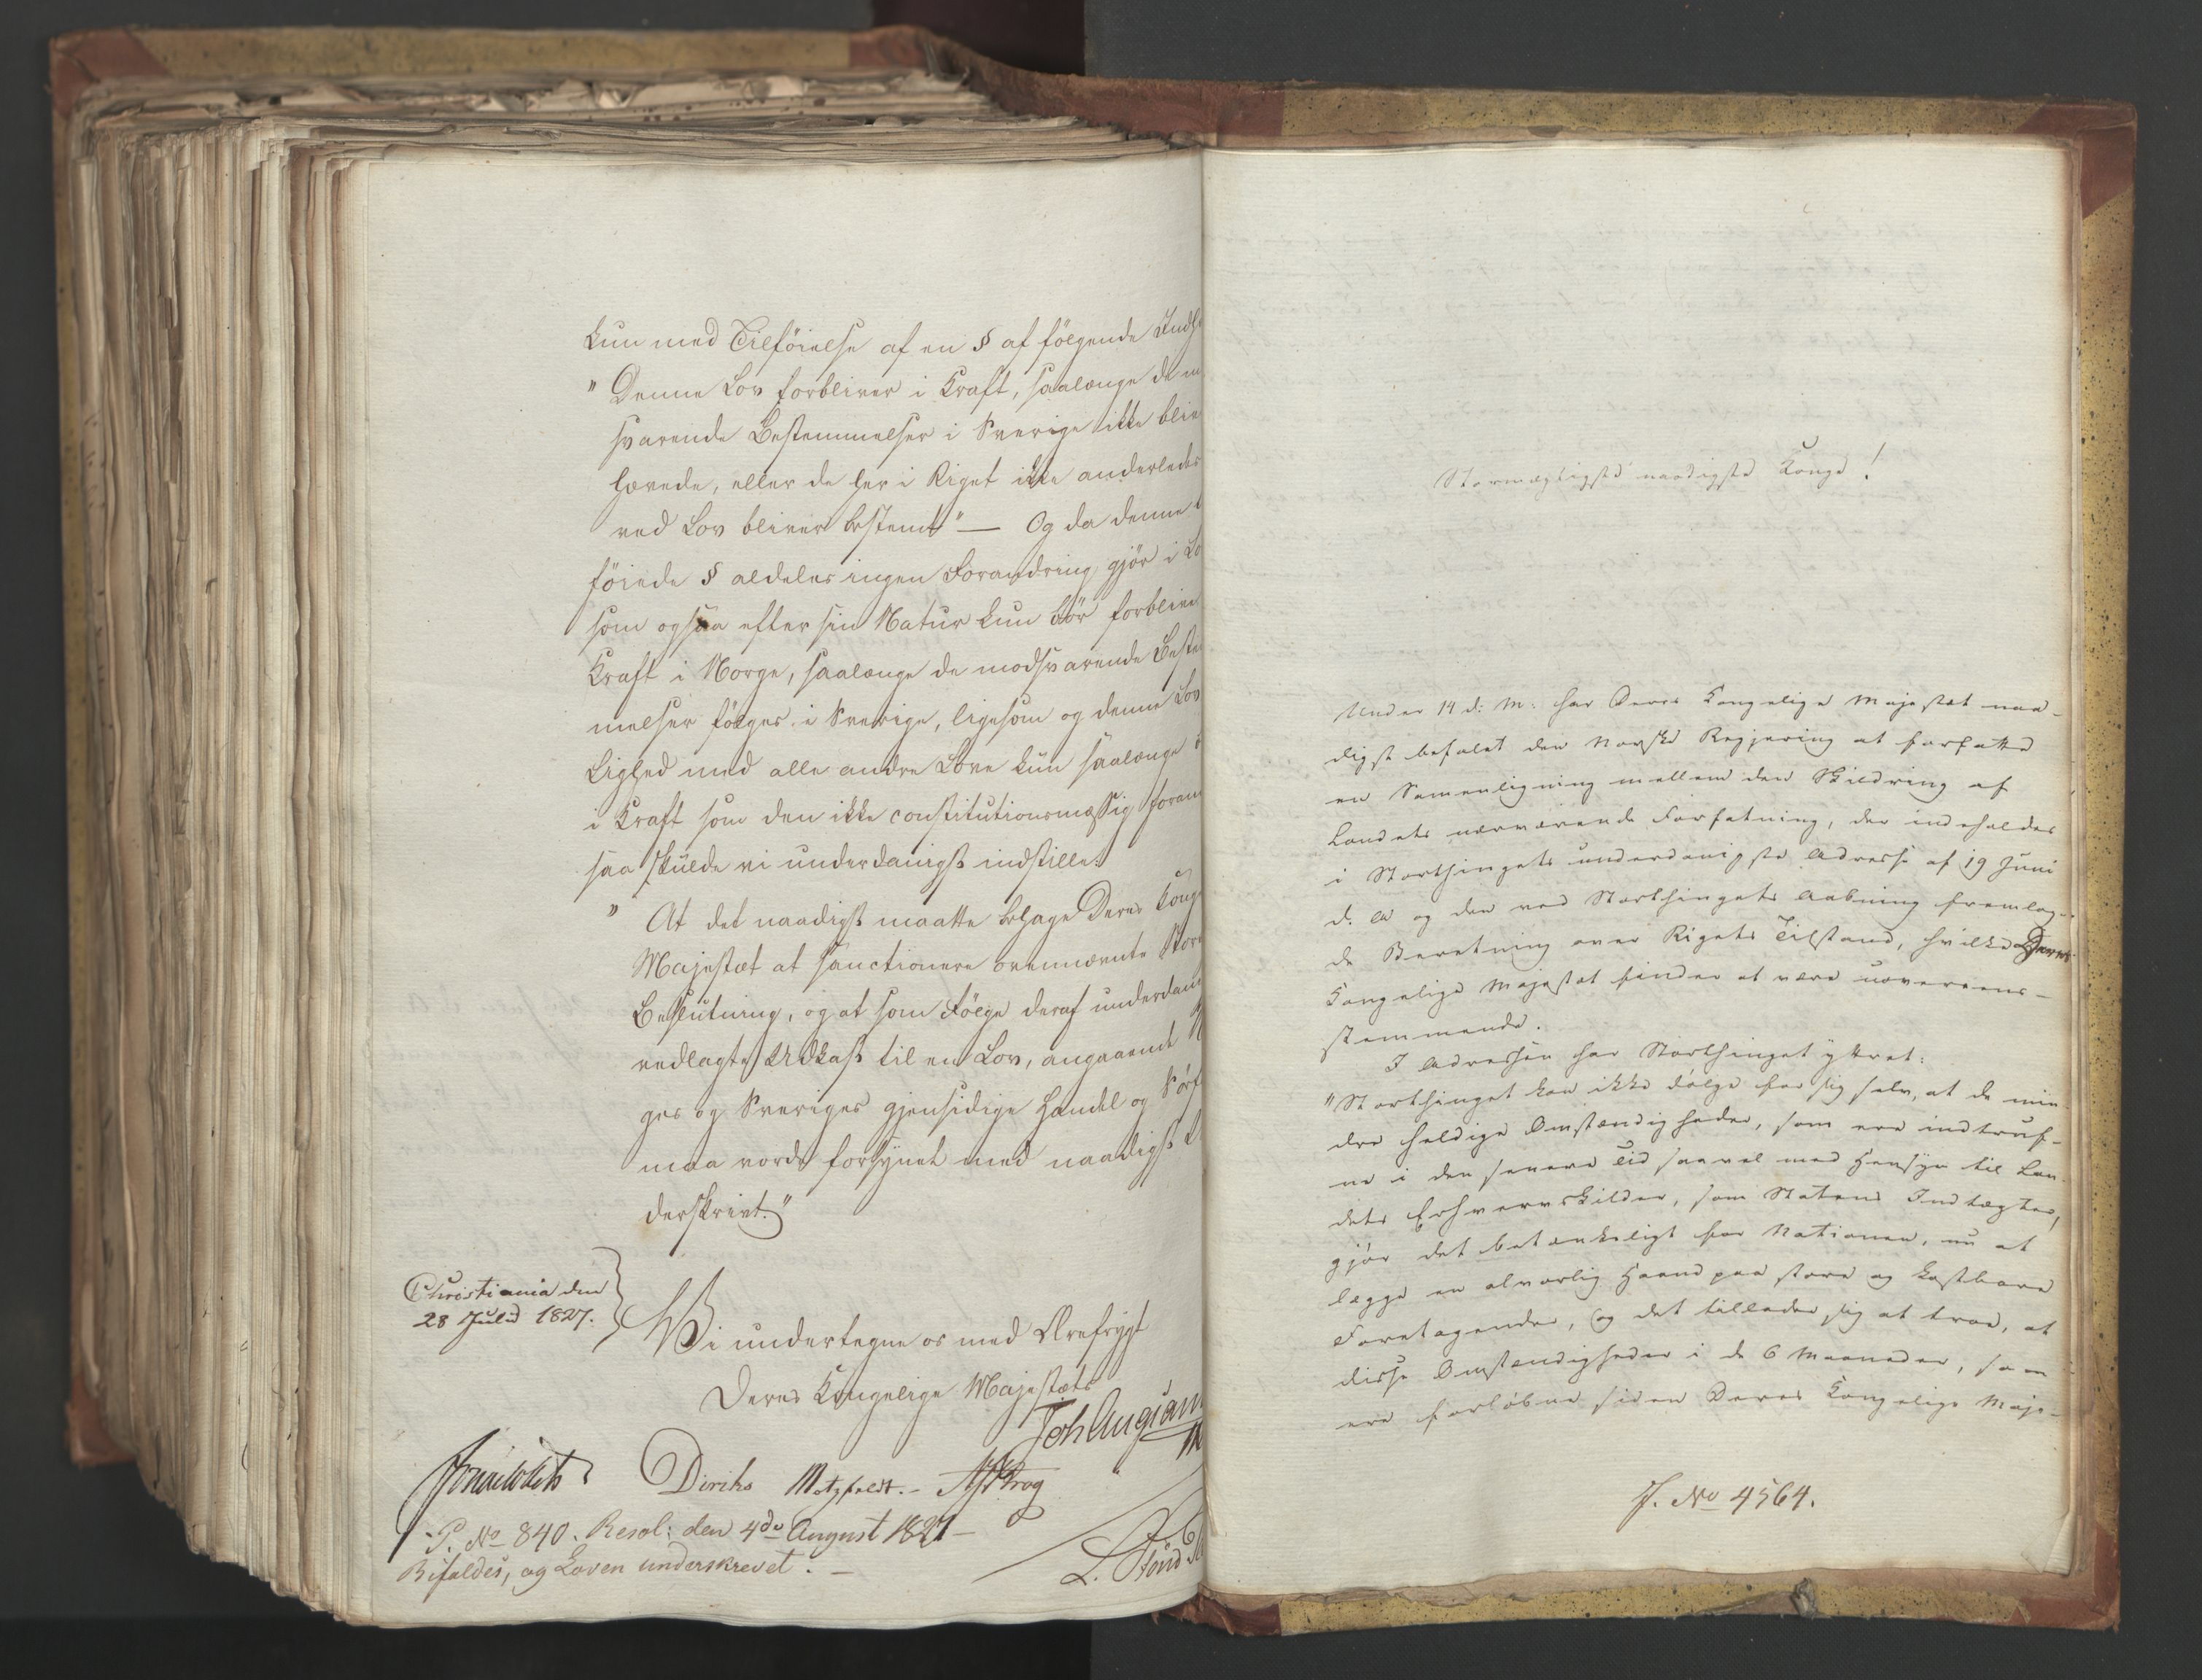 kun med Tilföielse af en § af følgende Indh
" Denne Lov forbliver i Kraft, saalænge de m
svarende Bestemmelser i Sverige ikke blive
hævede, eller de her i Riget ikke anderledes
ved Lov bliver bestemt" — Og da denne
föiede § aldeles ingen Forandring gjör i Lo
som ogsaa efter sin Natur kun bör forblive
Kraft i Norge, saalænge de modsvarende Beste
melser fölges i Sverige, ligesom og denne Lov
Lighed med alle andre Love kun saalænge
i Kraft som den ikke constitutionsmæssig foran
saa skulde vi underdanigst indstille:
" At det naadigst maatte behage Deres Kong
Majestæt at sanctionere ovennævnte Stor
Beslutning, og at som Fölge deraf underdan
vedlagte Udkast til en Lov, angaaende N
ges og Sveriges gjensidige Handel og Söef
maa vorde forsynet med naadigst U
derskrivt."
Christiania den
28 Julii 1827.
Vi undertegne os med Ærefrygt
Deres Kongelige Majestæts
Diriks Motzfeldt. Krog
P. No 840. Resol: den 4de August 1827 —
Bifaldes, og Loven underskrevet. —
Stormægtigste naadigste Konge!
Under 14 d: M: har Deres Kongelige Majestæt naa-
digst befalet den Norske Regjering at forfatte
en Samenligning mellem den Skildring af
Landets nærværende Forfatning, der indeholdes
i Storthingets underdanigste Adresse af 19 Juni
d. A og den ved Storthingets Aabning fremlag-
de Beretning over Rigets Tilstand, hvilke Deres
Kongelige Majestæt finder at være uovereens-
stemmende.
I Adressen har Storthinget yttret:
"Storthinget kan ikke dölge for sig selv, at de min
dre heldige Omstændigheder, som ere indtruf-
ne i den senere Tid saavel med Hensyn til Lan-
dets Erhvervskilder, som Statens Indtægter,
gjör det betænkeligt for Nationen, nu at
lægge en alvorlig Haand paa store og kostbare
Foretagender, og det tillader sig at troe, at
disse Omstændigheder i de 6 Maaneder, som
ere forløbne siden Deres Kongelige Maje-
J. No 4564.